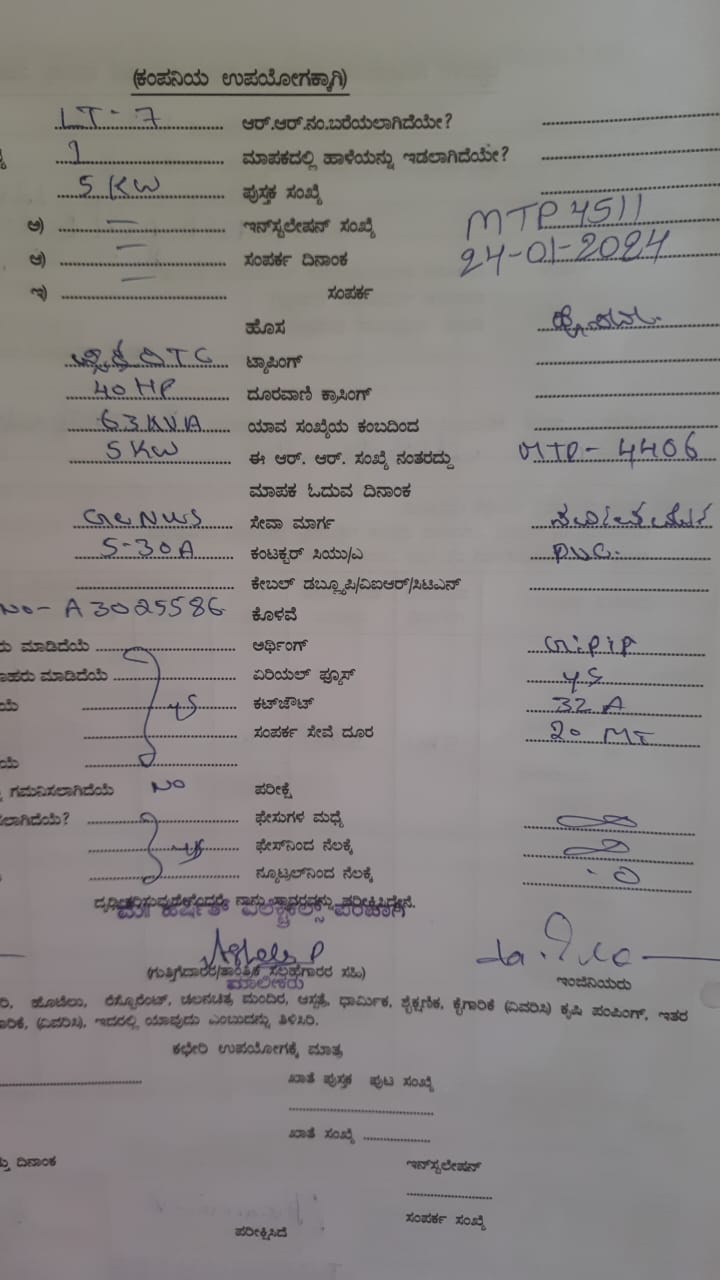 (ಕಂಪನಿಯ ಉಪಯೋಗಕ್ಕಾಗಿ)
LT-7 ಆರ್.ಆರ್.ನಂ.ಬರೆಯಲಾಗಿದೆಯೇ?
1 ಮಾಪಕದಲ್ಲಿ ಹಾಳೆಯನ್ನು ಇಡಲಾಗಿದೆಯೇ?
5 KW ಪುಸ್ತಕ ಸಂಖ್ಯೆ
ಅ) — ಇನ್‌ಸ್ಟಲೇಷನ್ ಸಂಖ್ಯೆ MTP 4511
ಆ) — ಸಂಪರ್ಕ ದಿನಾಂಕ 24-01-2024
ಇ) — ಸಂಪರ್ಕ
ಹೊಸ
DTC ಟ್ಯಾಪಿಂಗ್
40 HP ದೂರವಾಣಿ ಕ್ರಾಸಿಂಗ್
63 KVA ಯಾವ ಸಂಖ್ಯೆಯ ಕಂಬದಿಂದ
5 KW ಈ ಆರ್. ಆರ್. ಸಂಖ್ಯೆ ನಂತರದ್ದು MTP- 4406
ಮಾಪಕ ಓದುವ ದಿನಾಂಕ
GeNUS ಸೇವಾ ಮಾರ್ಗ
5-30A ಕಂಟಕ್ಟರ್ ಸಿಯು/ಎ PVC.
ಕೇಬಲ್ ಡಬ್ಲ್ಯೂಪಿ/ವಿಐಆರ್/ಸಿಟಿಎನ್
NO- A3025586 ಕೊಳವೆ
ರು ಮಾಡಿದೆಯೆ ಅರ್ಥಿಂಗ್ G.i.PiP
ಾಹರು ಮಾಡಿದೆಯೆ ಏರಿಯಲ್ ಫ್ಯೂಸ್ yS
ಯೆ yS ಕಟ್‌ಔಟ್ 32 A
ಸಂಪರ್ಕ ಸೇವೆ ದೂರ 20 MT
ಯೆ
ಗಮನಿಸಲಾಗಿದೆಯೆ NO ಪರೀಕ್ಷೆ
ಸಲಾಗಿದೆಯೆ? ಫೇಸುಗಳ ಮಧ್ಯೆ
yS ಫೇಸ್‌ನಿಂದ ನೆಲಕ್ಕೆ
ನ್ಯೂಟ್ರಲ್‌ನಿಂದ ನೆಲಕ್ಕೆ 0
ದೃಢೀಕರಿಸುವುದೇನೆಂದರೇ ನಾನು ಸ್ಥಾವರವನ್ನು ಪರೀಕ್ಷಿಸಿದ್ದೇನೆ.
(ಗುತ್ತಿಗೆದಾರರ/ತಾಂತ್ರಿಕ ಸಲಹೆಗಾರರ ಸಹಿ) ಇಂಜಿನಿಯರು
ಮಾಲೀಕರು
ರಿ, ಹೊಟೆಲು, ರೆಸ್ಟೋರೆಂಟ್, ಚಲನಚಿತ್ರ ಮಂದಿರ, ಆಸ್ಪತ್ರೆ, ಧಾರ್ಮಿಕ, ಶೈಕ್ಷಣಿಕ, ಕೈಗಾರಿಕೆ (ವಿವರಿಸಿ) ಕೃಷಿ ಪಂಪಿಂಗ್, ಇತರ
ಾರಿಕೆ, (ವಿವರಿಸಿ), ಇದರಲ್ಲಿ ಯಾವುದು ಎಂಬುದನ್ನು ತಿಳಿಸಿರಿ.
ಕಛೇರಿ ಉಪಯೋಗಕ್ಕೆ ಮಾತ್ರ
ಖಾತೆ ಪುಸ್ತಕ ಪುಟ ಸಂಖ್ಯೆ
ಖಾತೆ ಸಂಖ್ಯೆ
ತ್ತು ದಿನಾಂಕ ಇನ್‌ಸ್ಟಲೇಷನ್
ಸಂಪರ್ಕ ಸಂಖ್ಯೆ
ಪರೀಕ್ಷಿಸಿದೆ